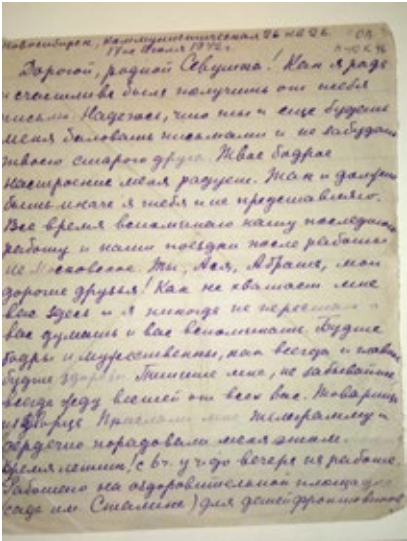 Новосибирск, Коммунистическая 26 кв 26.
14го Июля 1942 г.
Дорогой, родной Севушка! Как я рада
и счастлива была получить от тебя
письмо. Надеюсь, что ты и еще будешь
меня баловать письмами и не забудешь
твоего старого друга. Твое бодрое
настроение меня радует. Так и должно
быть иначе я тебя и не представляю.
Все время вспоминаю нашу последнюю
работу и наши поездки после работы
на Московское. Ты, Ася, Абраша, мои
дорогие друзья! Как не хватает мне
вас здесь и я никогда не перестаю о
вас думать и вас вспоминать. Будьте
бодры и мужественны, как всегда и главное
будьте здоровы. Пишите мне, не забывайте,
всегда жду вестей от всех вас. Товарищи
из Дворца прислали мне телеграмму и
сердечно порадовали меня этим.
Время летит! с 6ч. утра до вечера на работе.
Работаю на оздоровительной площадке
саде им. Сталина) для детей фронтовиков